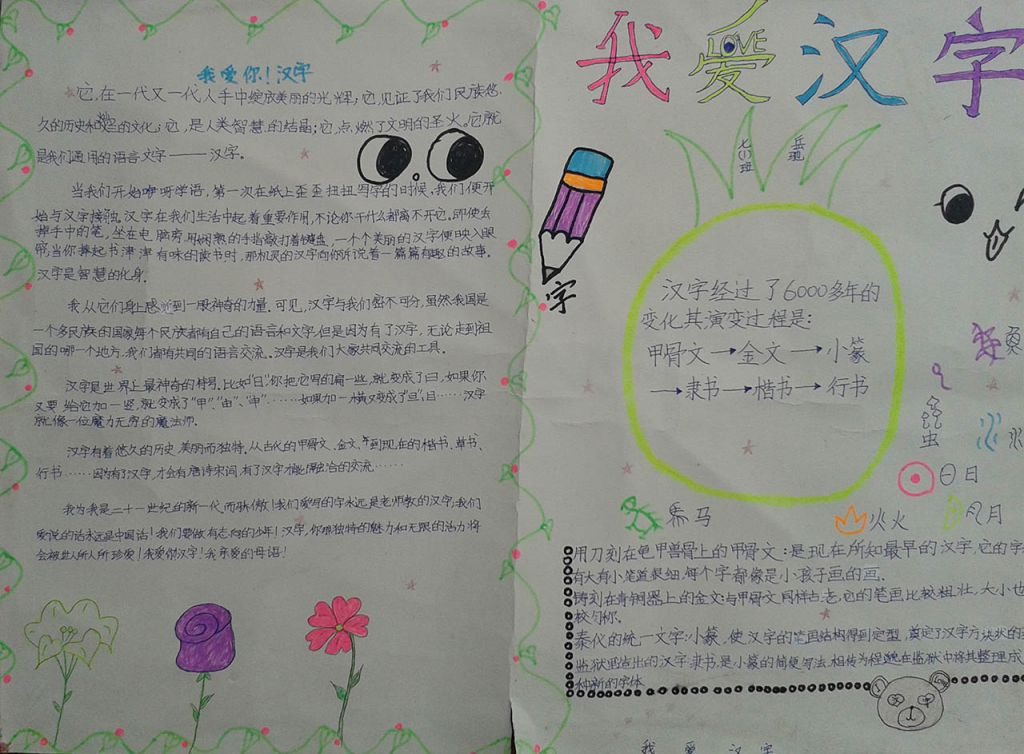 我爱你！汉字
它，在一代又一代人手中绽放美丽的光辉；它，见证了我们民族悠
久的历史和的文化；它，是人类智慧的结晶；它，点燃了文明的圣火。它就
是我们通用的语言文字——汉字。
当我们开始咿呀学语，第一次在纸上歪歪扭扭写字的时候，我们便开
始与汉字接触。汉字在我们生活中起着重要作用，不论你干什么都离不开它。即使丢
掉手中的笔，坐在电脑旁，用娴熟的手指敲打着键盘，一个个美丽的汉字便映入眼
帘，当你捧起书津津有味的读书时，那机灵的汉字向你诉说着一篇篇有趣的故事。
汉字是智慧的化身。
我从它们身上感觉到一股神奇的力量。可见，汉字与我们密不可分，虽然我国是
一个多民族的国家每个民族都有自己的语言和文字，但是因为有了汉字，无论走到祖
国的哪一个地方，我们都有共同的语言交流。汉字是我们大家共同交流的工具。
汉字是世界上最神奇的符号。比如"日"，你把它写的扁一些，就变成了曰，如果你
又要给它加一竖，就变成了"甲"、"由"、"申"……如果加一横又变成了旦、目……汉字
就像一位魔力无穷的魔法师。
汉字有着悠久的历史，美丽而独特。从古代的甲骨文、金文，到现在的楷书、草书、
行书……因为有了汉字，才会有唐诗宋词，有了汉字才能融洽的交流……
我为我是二十一世纪的新一代，而骄傲！我们爱写的字永远是老师教的汉字；我们
爱说的话永远是中国话！我们要做有志向的少年！汉字，你那独特的魅力和无限的活力将
会被世人所人所珍爱！我爱你汉字！我亲爱的母语！
我爱汉字
LOVE
七(1)班
字
汉字经过了6000多年的
变化，其演变过程是：
甲骨文→金文→小篆
→隶书→楷书→行书
虫
日
马
火
月
用刀刻在龟甲兽骨上的甲骨文：是现在所知最早的汉字，它的字
有大有小笔道很细，每个字都像是小孩子画的画.
铸刻在青铜器上的金文：与甲骨文同样古老，它的笔画比较粗壮，大小也
较匀称.
秦代的统一文字：小篆，使汉字的笔画结构得到定型，奠定了汉字方块状的
监狱里造出的汉字：隶书，是小篆的简便写法，相传为程邈在监狱中将其整理成
种新的字体
我爱汉字